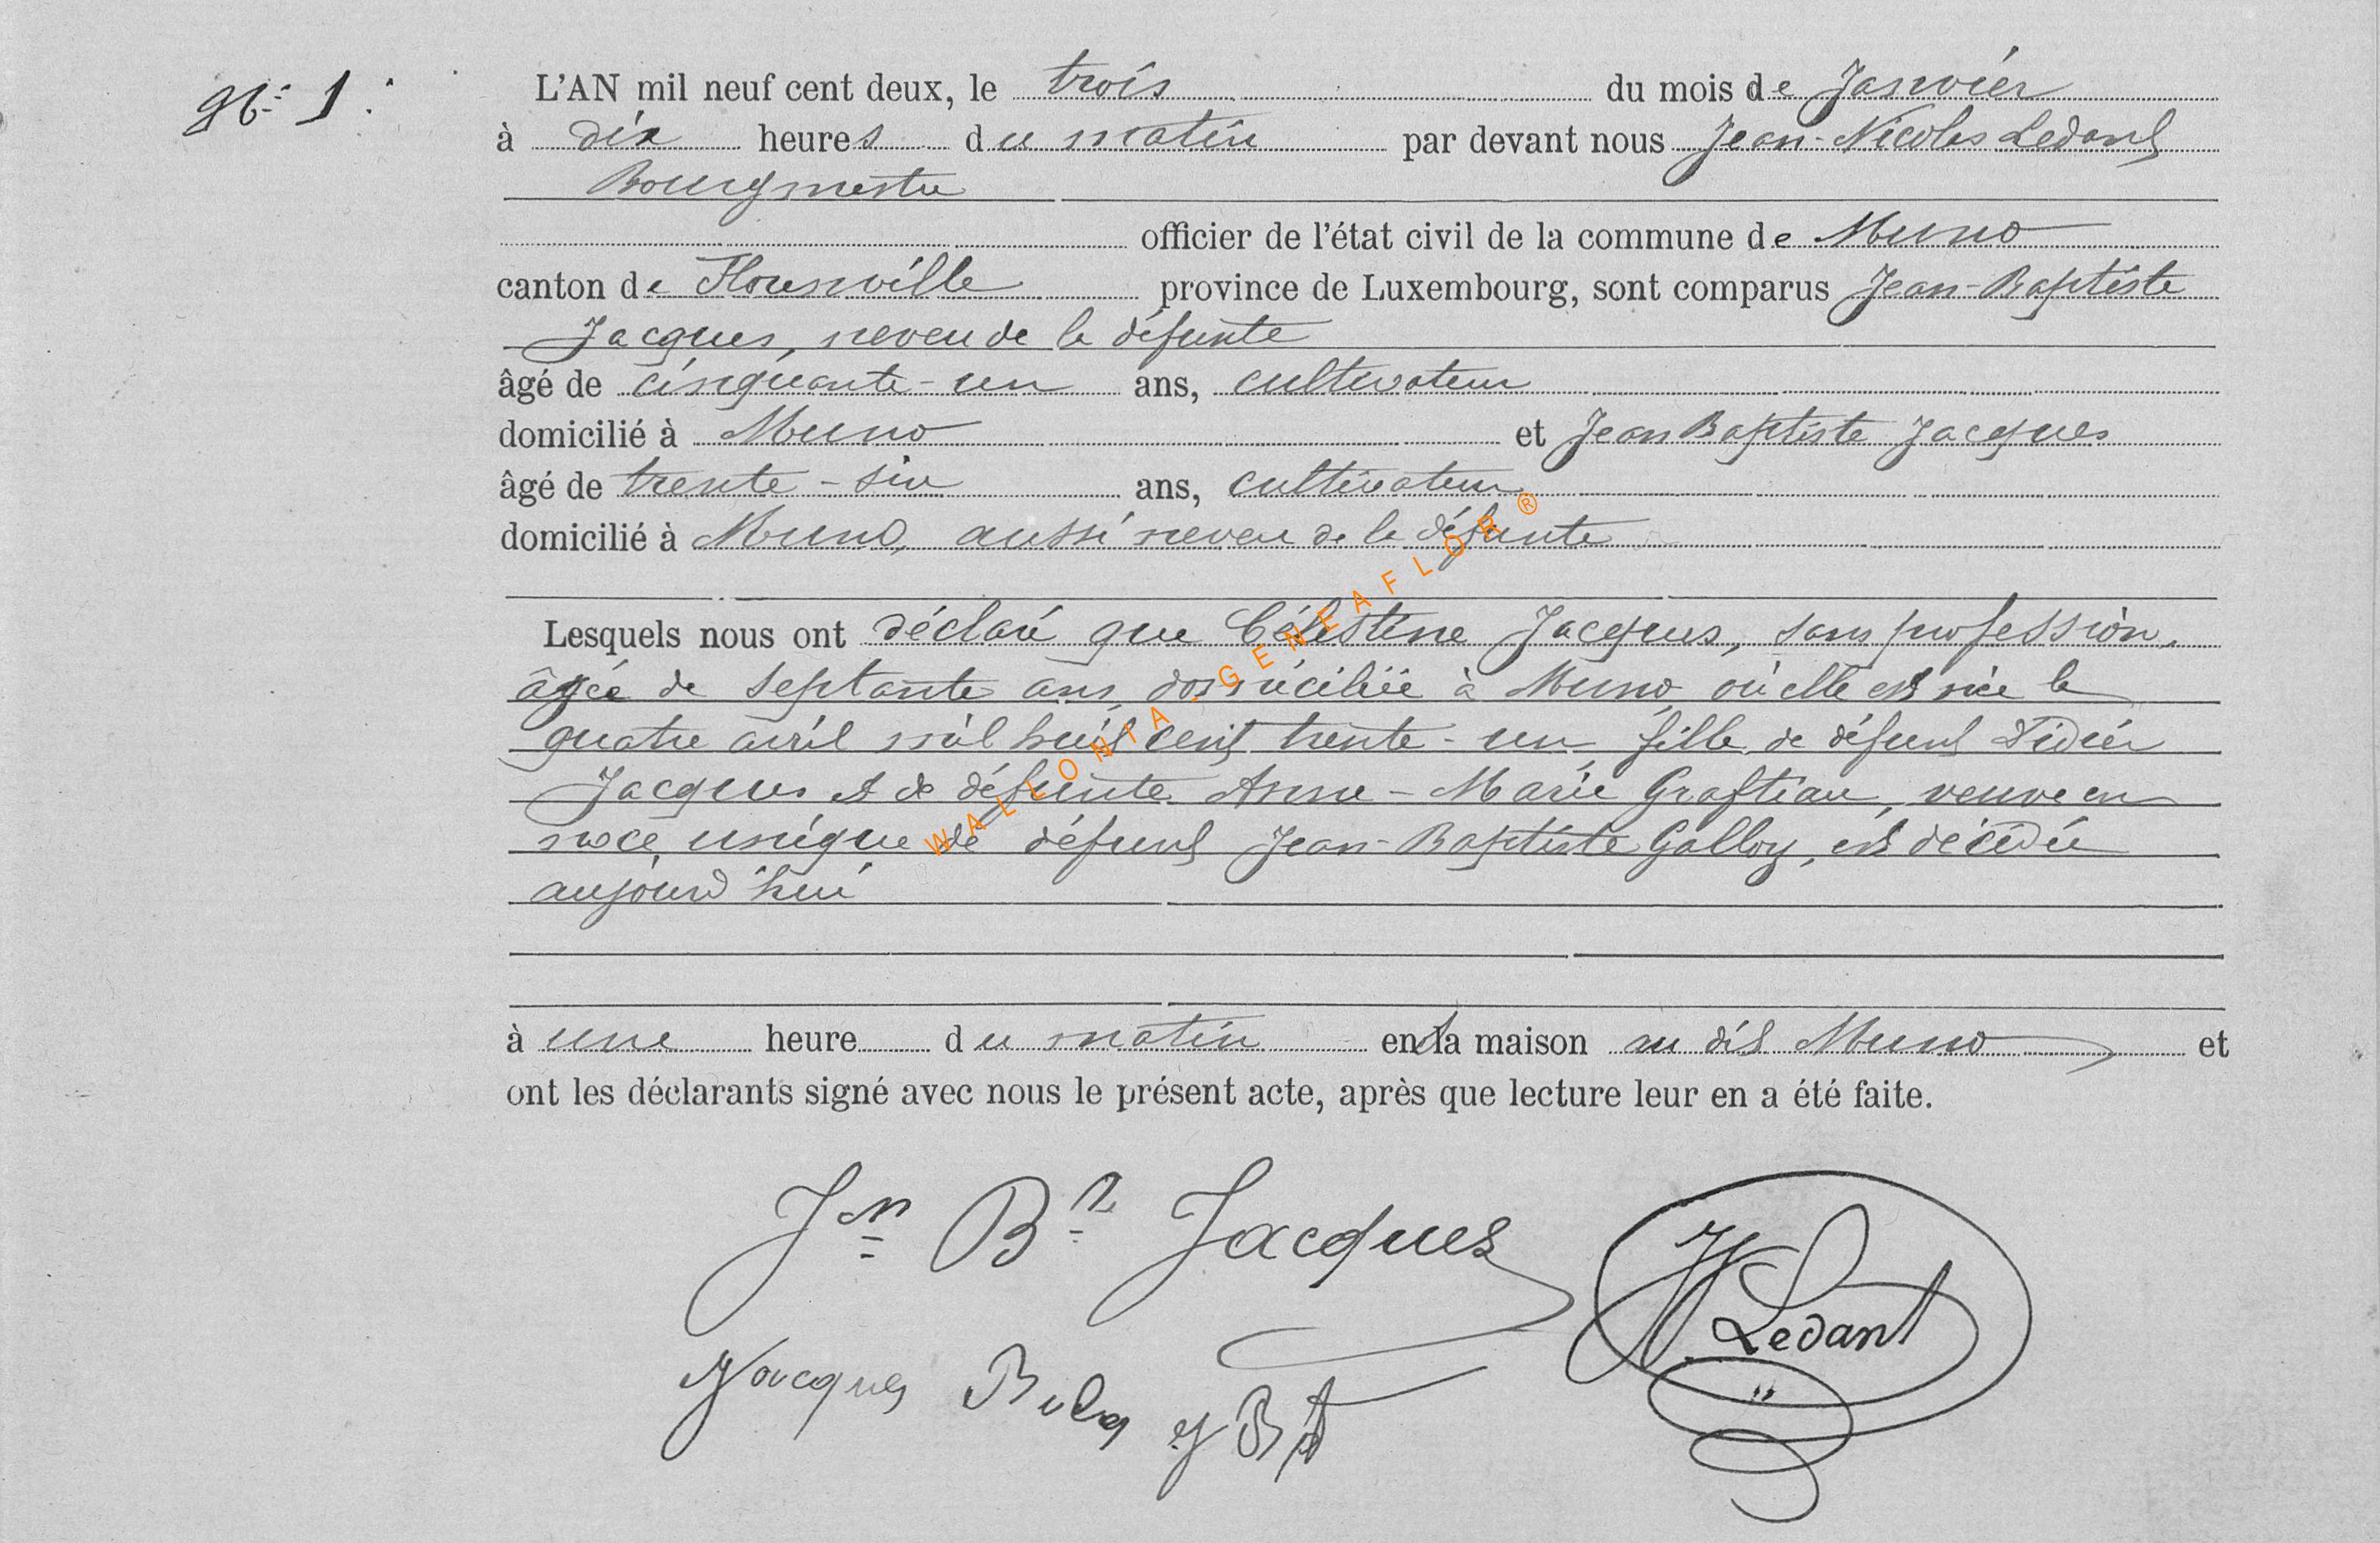 N° 1.
L'AN mil neuf cent deux, le trois du mois de Janvier
à dix heures du matin par devant nous Jean-Nicolas Ledant
Bourgmestre
officier de l'état civil de la commune de Muno
canton de Florenville province de Luxembourg, sont comparus Jean-Baptiste
Jacques, neveu de la défunte
âgé de cinquante-un ans, cultivateur
domicilié à Muno et Jean Baptiste Jacques
âgé de trente-six ans, cultivateur
domicilié à Muno, aussi neveu de la défunte
Lesquels nous ont déclaré que Célestine Jacques, sans profession,
âgée de septante ans, domiciliée à Muno où elle est née le
quatre avril mil huit cent trente-un, fille de défunt Didier
Jacques et de défunte Anne-Marie Graftiau, veuve en
noce unique de défunt Jean-Baptiste Galloy, est décédée
aujourd'hui
à une heure du matin en sa maison au dit Muno et
ont les déclarants signé avec nous le présent acte, après que lecture leur en a été faite.
Jn Bte Jacques
JN Ledant
Jacques J Bt
WALLONIA - GENEAFLOR ®